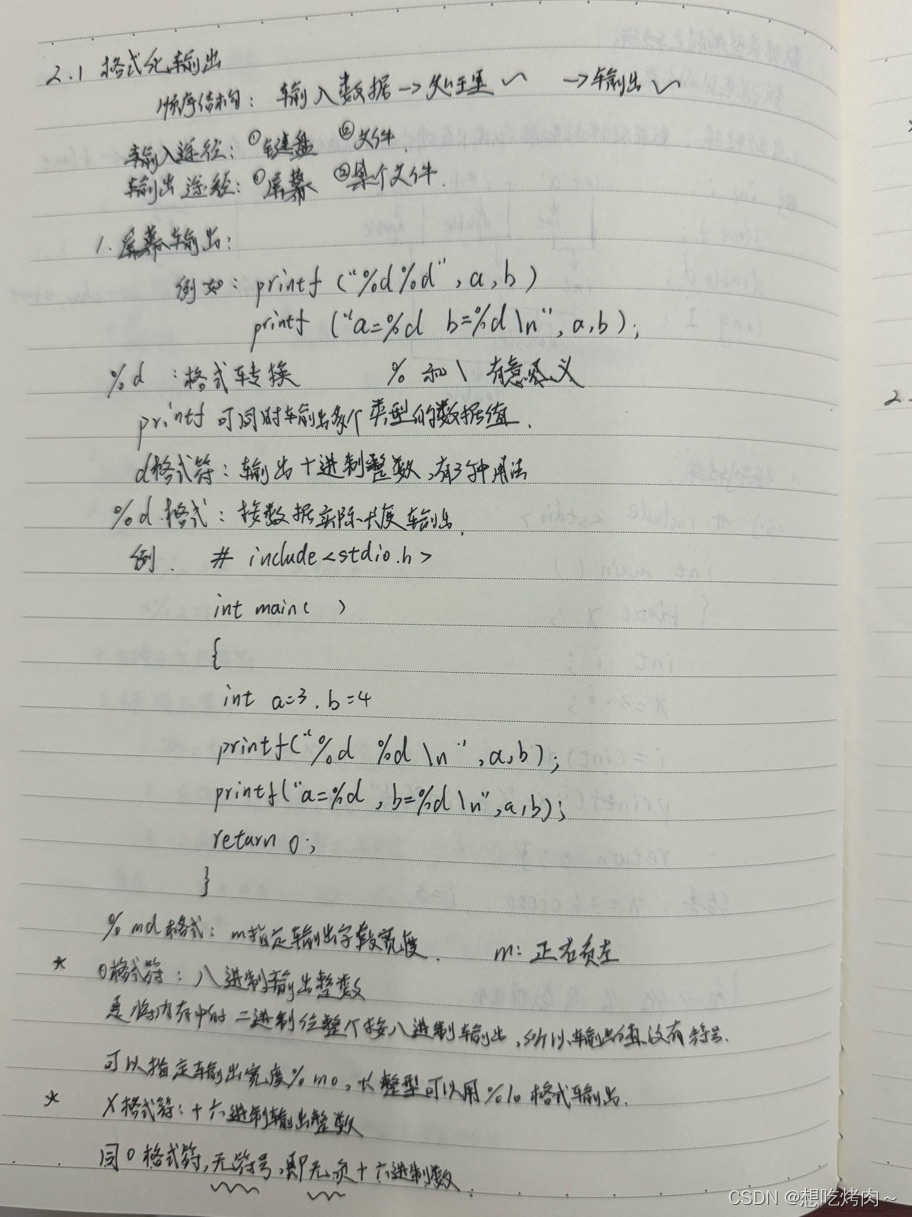 2.1 格式化输出
顺序结构: 输入数据→处理 →输出
输入途径: ①键盘 ②文件.
输出途经: ①屏幕 ②某个文件.
1. 屏幕输出:
例如: printf ("%d%d", a, b)
printf ("a=%d b=%d \n", a, b);
%d :格式转换 % 和 \ 有意义
printf 可同时输出多个类型的数据值.
d格式符: 输出十进制整数,有3种用法
%d.格式: 按数据实际长度输出.
例. # include<stdio.h>
int main( )
{
int a=3. b=4
printf("%d %d \n", a,b);
printf("a=%d , b=%d \n", a,b);
return 0;
}
% md格式: m指定输出字段宽度. m: 正右负左
* O格式符: 八进制输出整数
是将内存中的二进制位整个按八进制输出,所以输出值没有符号.
可以指定输出宽度%mo, 长整型可以用%lo格式输出.
* X格式符: 十六进制输出整数
同O格式符,无符号,即无负十六进制数.
CSDN @想吃烤肉~
2.